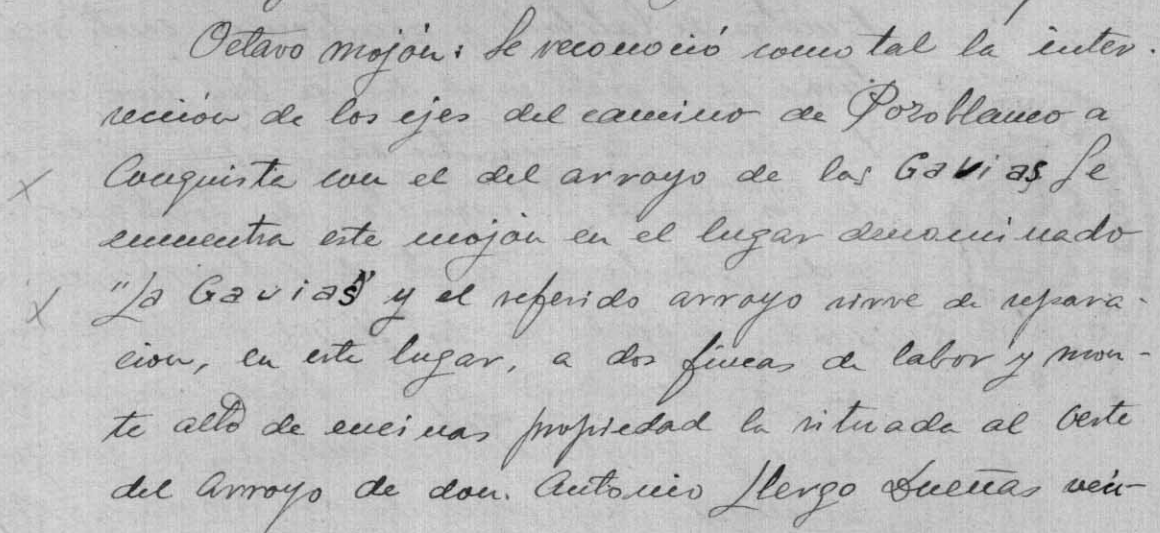 Octavo mojón: Se reconoció como tal la inter-
sección de los ejes del camino de Pozoblanco a
Conquista con el del arroyo de las Gavias Se
encuentra este mojón en el lugar denominado
"La Gavias" y el referido arroyo sirve de separa-
cion, en este lugar, a dos fincas de labor y mon-
te alto de encinas propiedad la situada al Oeste
del Arroyo de don. Antonio Llergo Dueñas veci-